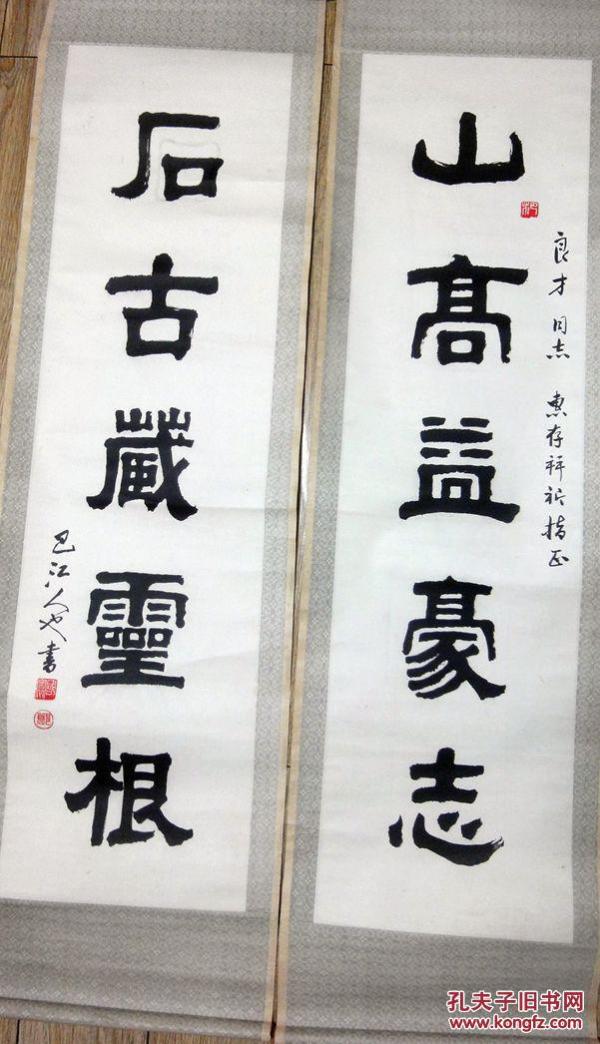 山高益豪志
良才同志 惠存并祈指正
石古藏靈根
巴江人也書
孔夫子旧书网
www.kongfz.com